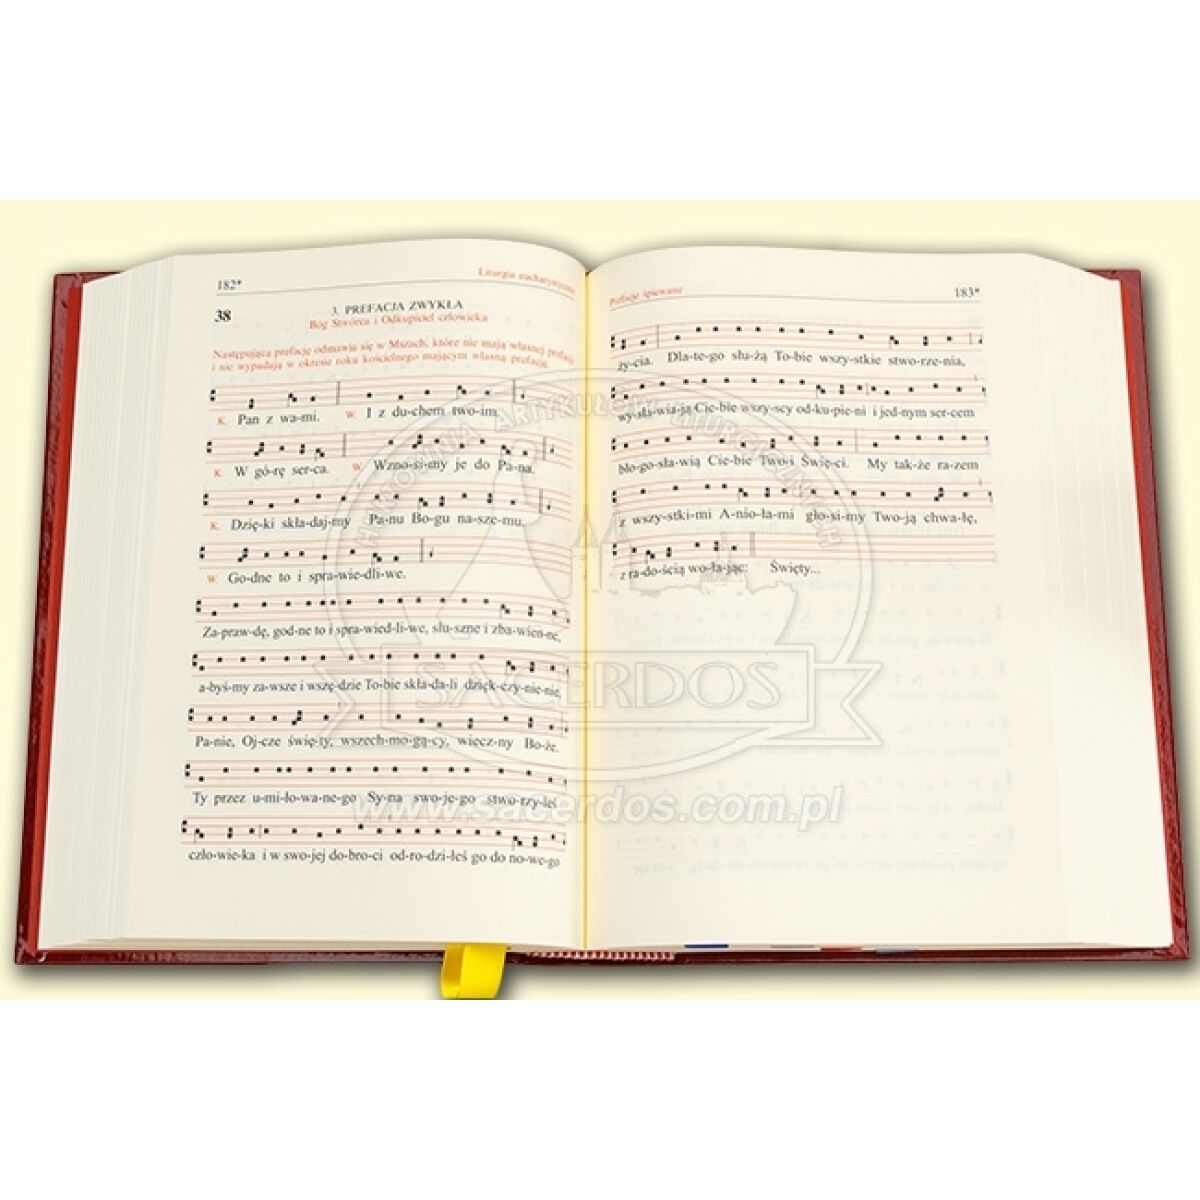 182*
Liturgia eucharystyczna
38
3. PREFACJA ZWYKŁA
Bóg Stwórca i Odkupiciel człowieka
Następującą prefację odmawia się w Mszach, które nie mają własnej prefacji
i nie wypadają w okresie roku kościelnego mającym własną prefację.
K. Pan z wa-mi. W. I z du-chem two-im.
K. W gó-rę ser-ca. W. Wzno-si-my je do Pa-na.
K. Dzię-ki skła-daj-my Pa-nu Bo-gu na-sze-mu.
W. Go-dne to i spra-wie-dli-we.
Za-praw-dę, god-ne to i spra-wied-li-we, słu-szne i zba-wien-ne,
a-byś-my za-wsze i wszę-dzie To-bie skła-da-li dzięk-czy-nie-nie,
Pa-nie, Oj-cze świę-ty, wszech-mo-gą-cy, wiecz-ny Bo-że.
Ty przez u-mi-ło-wa-ne-go Sy-na swo-je-go stwo-rzy-łeś
czło-wie-ka i w swo-jej do-bro-ci od-ro-dzi-łeś go do no-we-go
Prefacje śpiewane
183*
ży-cia. Dla-te-go słu-żą To-bie wszy-stkie stwo-rze-nia,
wy-sła-wia-ją Cie-bie wszy-scy od-ku-pie-ni i jed-nym ser-cem
bło-go-sła-wią Cie-bie Two-i Świę-ci. My tak-że ra-zem
z wszy-stki-mi A-nio-ła-mi gło-si-my Two-ją chwa-łę,
z ra-do-ścią wo-ła-jąc: Święty...
HURTOWNIA ARTYKUŁÓW LITURGICZNYCH
SACERDOS
www.sacerdos.com.pl